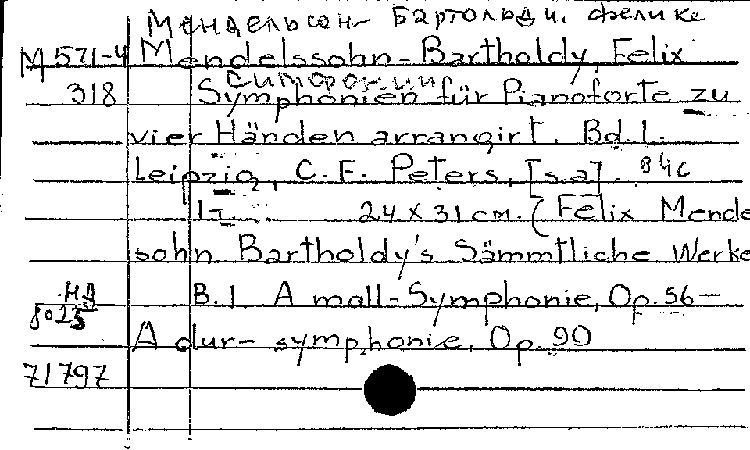 Мендельсон-Бартольди, Феликс
М 571-4 Mendelssohn-Bartholdy, Felix
Симфонии
318 Symphonien für Pianoforte zu
vier Händen arrangirt. Bd. 1.
Leipzig, C. F. Peters, [s.a]. 84c
24 x 31 cm. (Felix Mende
sohn Bartholdy's Sämmtliche Werke
B. 1 A moll-Symphonie, Op. 56 –
8023
A dur-symphonie, Op. 90
71797